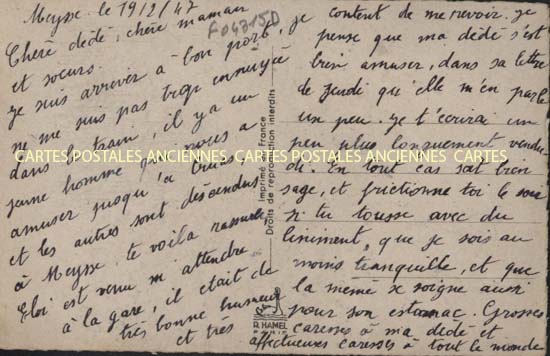 Meysse. le 19/2/47
F043150
Chère dédé, chère maman
et soeurs.
je suis arrivée à bon port,
ne me suis pas trop ennuyée
dans le train, il y a un
jeune homme qui nous a
amuser jusqu'à
et les autres sont descendus
à Meysse, te voila rassurée,
Eloi est venu m'attendre
à la gare, il était de
très bonne humeur
et très
content de me revoir. je
pense que ma dédé s'est
bien amuser, dans sa lettre
de jeudi qu'elle m'en parle
un peu. je t'écrirai un
peu plus longuement vendre
di. En tout cas soit bien
sage, et frictionne toi le soir
si tu tousse avec du
liniment, que je sois au
moins tranquille, et que
la mémé se soigne aussi
pour son estomac. Grosses
caresses à ma dédé et
affectueuses caresses à tout le monde
Imprimé en France
Droits de reproduction interdits
CARTES POSTALES ANCIENNES CARTES POSTALES ANCIENNES CARTES
R. HAMEL